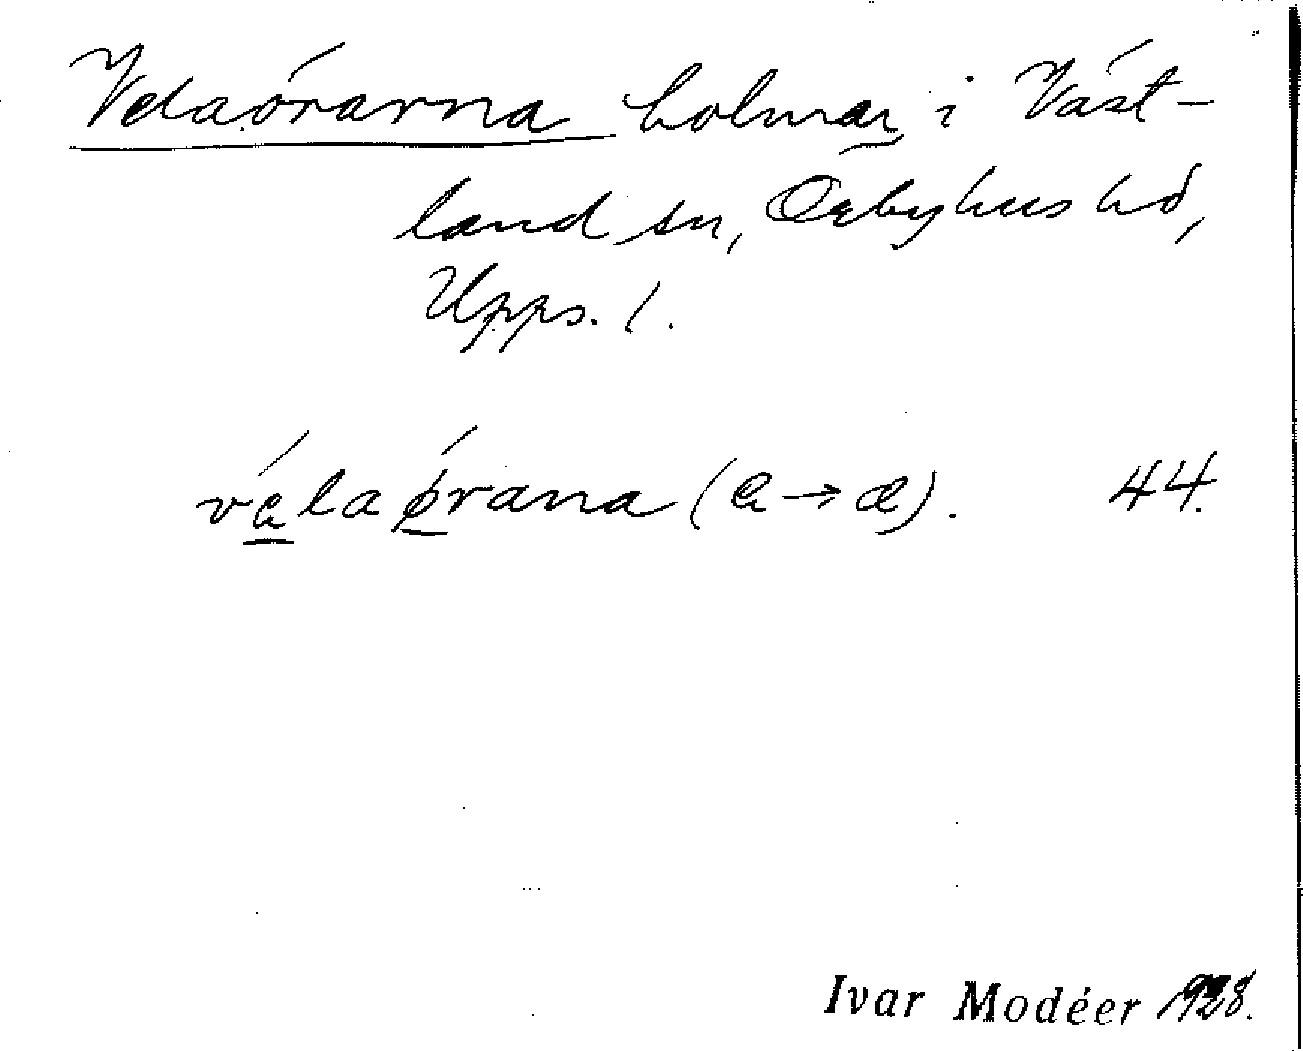 Velaörarna holmar i Väst-
land sn, Örbyhus hd,
Upps. l.
vélaǿrana (e → æ). 44.
Ivar Modéer 1928.